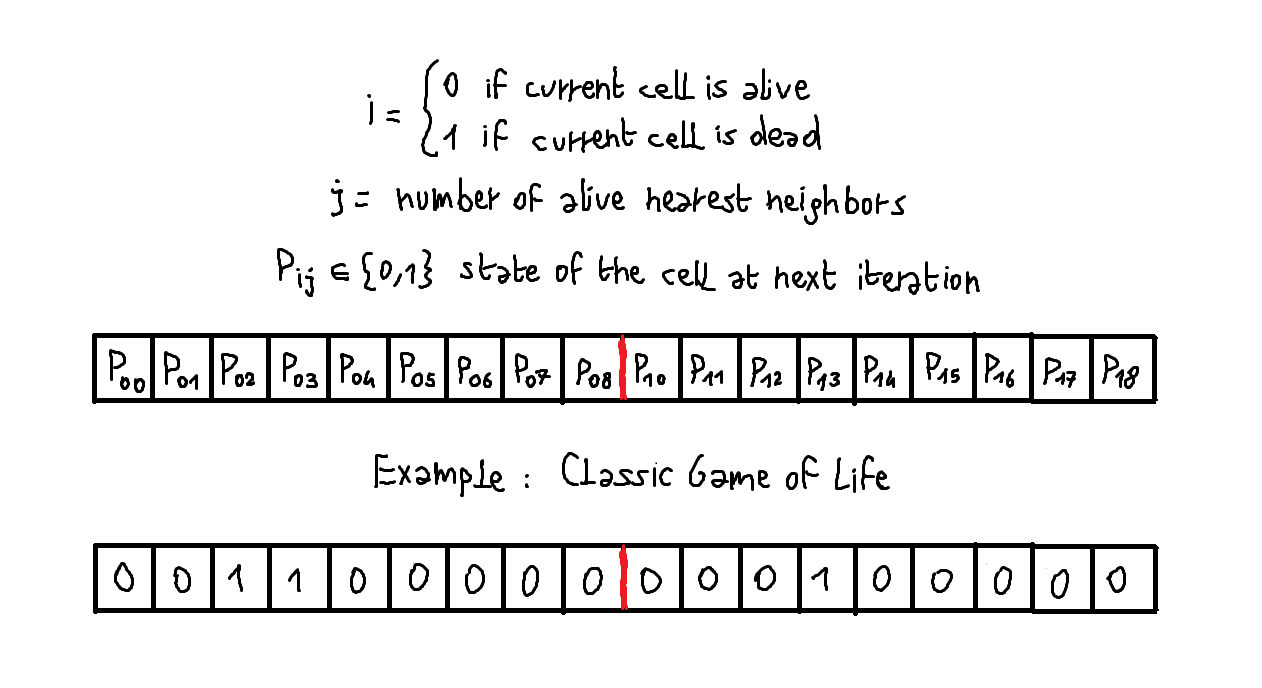 i = { 0 if current cell is alive
1 if current cell is dead
j = number of alive nearest neighbors
P_ij ∈ {0,1} state of the cell at next iteration
P_00 P_01 P_02 P_03 P_04 P_05 P_06 P_07 P_08 P_10 P_11 P_12 P_13 P_14 P_15 P_16 P_17 P_18
Example : Classic Game of Life
0 0 1 1 0 0 0 0 0 0 0 0 1 0 0 0 0 0